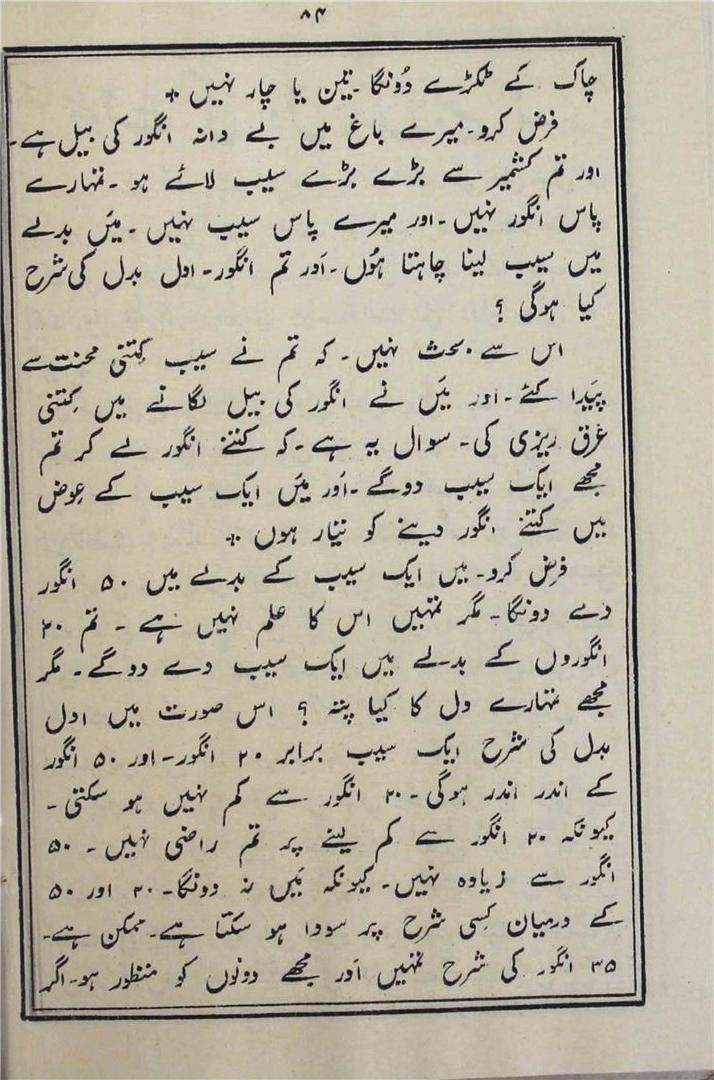 ۸۴
چاک کے ٹکڑے دُونگا۔ تین یا چار نہیں *
فرض کرو۔ میرے باغ میں بے دانہ انگور کی بیل ہے۔
اور تم کشمیر سے بڑے بڑے سیب لائے ہو۔ تمہارے
پاس انگور نہیں۔ اور میرے پاس سیب نہیں۔ میَں بدلے
میں سیب لینا چاہتا ہُوں۔ اَور تم انگور۔ اول بدل کی شرح
کیا ہوگی ؟
اس سے بحث نہیں۔ کہ تم نے سیب کِتنی محنت سے
پَیدا کئے۔ اور میَں نے انگور کی بیل لگانے میں کِتنی
عَرق ریزی کی۔ سوال یہ ہے۔ کہ کتنے انگور لے کر تم
مجھے ایک سیب دوگے۔ اَور میَں ایک سیب کے عِوض
میں کتنے انگور دینے کو تیّار ہوں *
فرض کرو۔ میں ایک سیب کے بدلے میں ۵۰ انگور
دے دونگا۔ مگر تمہیں اس کا علم نہیں ہے۔ تم ۲۰
انگوروں کے بدلے میں ایک سیب دے دوگے۔ مگر
مجھے تمہارے دل کا کیا پتہ ؟ اس صورت میں اول
بدل کی شرح ایک سیب برابر ۲۰ انگور۔ اور ۵۰ انگور
کے اندر اندر ہوگی۔ ۲۰ انگور سے کم نہیں ہو سکتی۔
کیونکہ ۲۰ انگور سے کم لینے پر تم راضی نہیں۔ ۵۰
انگور سے زیادہ نہیں۔ کیونکہ میَں نہ دونگا۔ ۲۰ اور ۵۰
کے درمیان کِسی شرح پر سودا ہو سکتا ہے۔ ممکن ہے۔
۳۵ انگور کی شرح تمہیں اَور مجھے دونوں کو منظور ہو۔ اگر